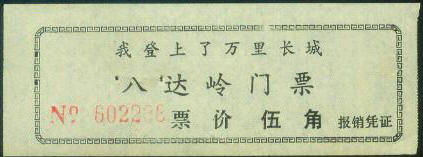 我登上了万里长城
八达岭门票
№ 602286 票价伍角 报销凭证